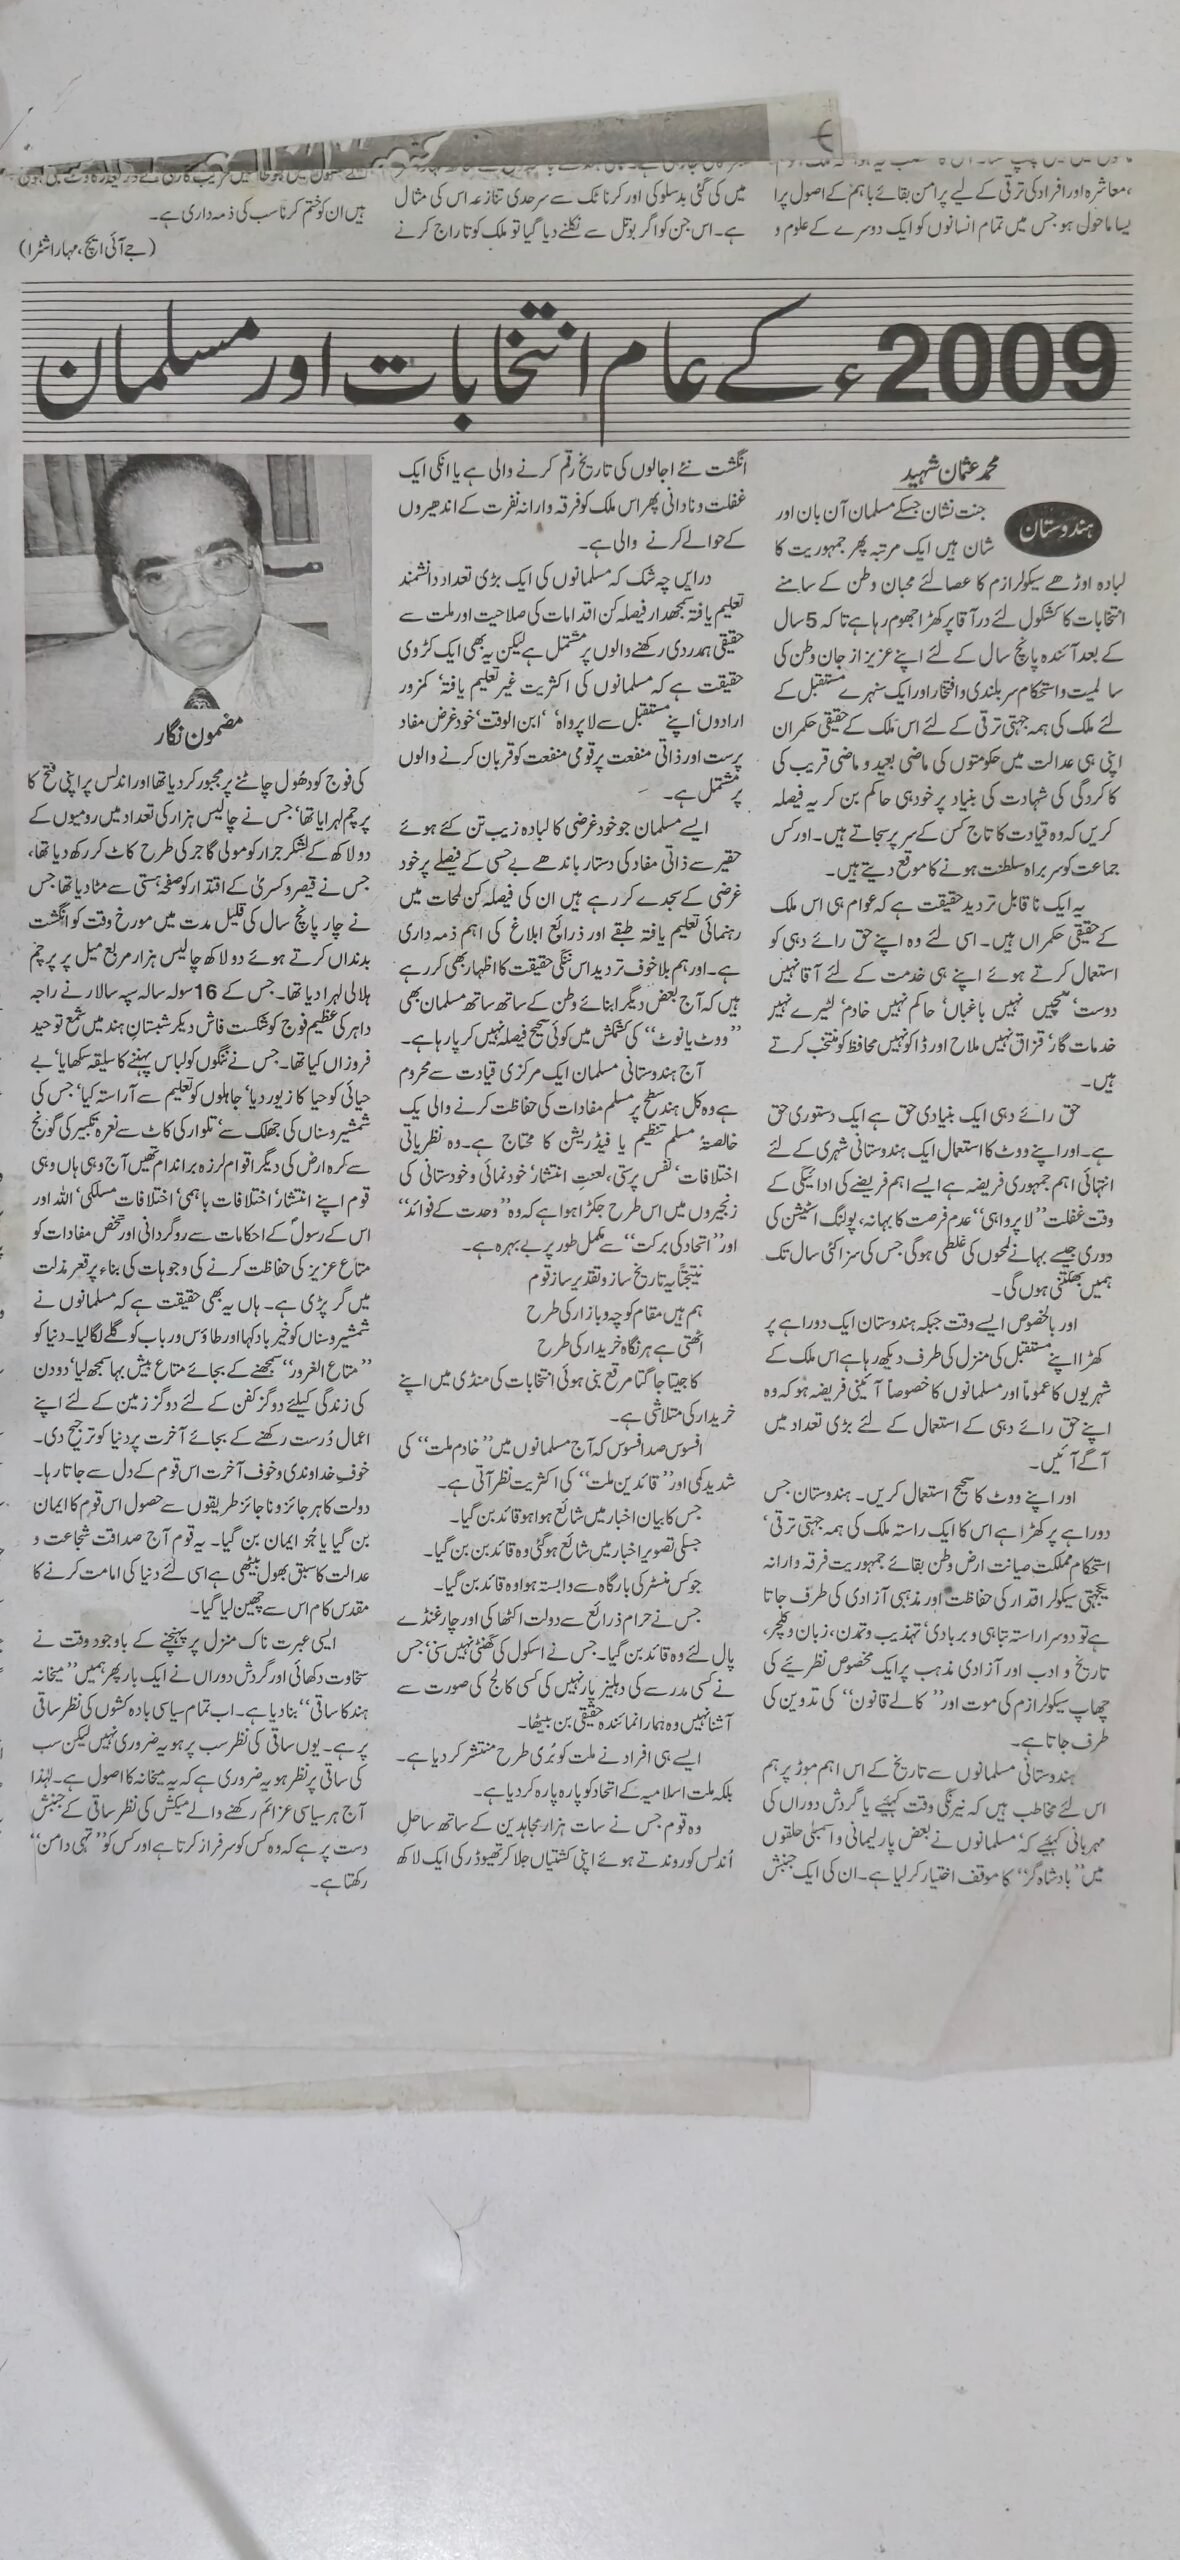 معاشرہ اور افراد کی ترقی کے لیے پرامن بقائے باہم کے اصول پرا
یسا ماحول ہو جس میں تمام انسانوں کو ایک دوسرے کے علوم و
میں کی گئی بدسلوکی اور کرناٹک سے سرحدی تنازعہ اس کی مثال
ہے۔ اس جن کو اگر بوتل سے نکلنے دیا گیا تو ملک کو تاراج کرنے
ہیں ان کو ختم کرنا سب کی ذمہ داری ہے۔
(جے آئی ایچ، مہاراشٹرا)
2009ء کے عام انتخابات اور مسلمان
محمد عثمان شہید
ہندوستان جنت نشان جسکے مسلمان آن بان اور
شان ہیں ایک مرتبہ پھر جمہوریت کا
لبادہ اوڑھے سیکولرازم کا عصا لئے محبان وطن کے سامنے
انتخابات کا کشکول لئے در آقا پر کھڑا جھوم رہا ہے تاکہ 5 سال
کے بعد آئندہ پانچ سال کے لئے اپنے عزیز از جان وطن کی
سالمیت و استحکام سربلندی و افتخار اور ایک سنہرے مستقبل کے
لئے ملک کی ہمہ جہتی ترقی کے لئے اس ملک کے حقیقی حکمران
اپنی ہی عدالت میں حکومتوں کی ماضی بعید و ماضی قریب کی
کارکردگی کی شہادت کی بنیاد پر خود ہی حاکم بن کر یہ فیصلہ
کریں کہ وہ قیادت کا تاج کس کے سر پر سجاتے ہیں۔ اور کس
جماعت کو سربراہ سلطنت ہونے کا موقع دیتے ہیں۔
یہ ایک ناقابل تردید حقیقت ہے کہ عوام ہی اس ملک
کے حقیقی حکمراں ہیں۔ اسی لئے وہ اپنے حق رائے دہی کو
استعمال کرتے ہوئے اپنے ہی خدمت کے لئے آقا نہیں
دوست‘ گلچیں نہیں باغباں‘ حاکم نہیں خادم‘ لٹیرے نہیں
خدمات گار‘ قزاق نہیں ملاح اور ڈاکو نہیں محافظ کو منتخب کرتے
ہیں۔
حق رائے دہی ایک بنیادی حق ہے ایک دستوری حق
ہے۔ اور اپنے ووٹ کا استعمال ایک ہندوستانی شہری کے لئے
انتہائی اہم جمہوری فریضہ ہے ایسے اہم فریضے کی ادائیگی کے
وقت غفلت ’’لاپرواہی‘‘ عدم فرصت کا بہانہ، پولنگ اسٹیشن کی
دوری جیسے بہانے لمحوں کی غلطی ہوگی جس کی سزا کئی سال تک
ہمیں بھگتنی ہوں گی۔
اور بالخصوص ایسے وقت جبکہ ہندوستان ایک دوراہے پر
کھڑا اپنے مستقبل کی منزل کی طرف دیکھ رہا ہے اس ملک کے
شہریوں کا عموماً اور مسلمانوں کا خصوصاً آئینی فریضہ ہو کہ وہ
اپنے حق رائے دہی کے استعمال کے لئے بڑی تعداد میں
آگے آئیں۔
اور اپنے ووٹ کا صحیح استعمال کریں۔ ہندوستان جس
دوراہے پر کھڑا ہے اس کا ایک راستہ ملک کی ہمہ جہتی ترقی‘
استحکام مملکت صیانت ارض وطن بقائے جمہوریت فرقہ وارانہ
یکجہتی سیکولر اقدار کی حفاظت اور مذہبی آزادی کی طرف جاتا
ہے تو دوسرا راستہ تباہی و بربادی‘ تہذیب و تمدن، زبان و کلچر،
تاریخ و ادب اور آزادی مذہب پر ایک مخصوص نظریئے کی
چھاپ سیکولرازم کی موت اور ’’کالے قانون‘‘ کی تدوین کی
طرف جاتا ہے۔
ہندوستانی مسلمانوں سے تاریخ کے اس اہم موڑ پر ہم
اس لئے مخاطب ہیں کہ نیرنگی وقت کہیئے یا گردش دوراں کی
مہربانی کہیئے کہ‘ مسلمانوں نے بعض پارلیمانی و اسمبلی حلقوں
میں ’’بادشاہ گر‘‘ کا موقف اختیار کرلیا ہے۔ ان کی ایک جنبش
انگشت نئے اجالوں کی تاریخ رقم کرنے والی ہے یا انکی ایک
غفلت و نادانی پھر اس ملک کو فرقہ وارانہ نفرت کے اندھیروں
کے حوالے کرنے والی ہے۔
دریں چہ شک کہ مسلمانوں کی ایک بڑی تعداد دانشمند
تعلیم یافتہ سمجھدار فیصلہ کن اقدامات کی صلاحیت اور ملت سے
حقیقی ہمدردی رکھنے والوں پر مشتمل ہے لیکن یہ بھی ایک کڑوی
حقیقت ہے کہ مسلمانوں کی اکثریت غیر تعلیم یافتہ‘ کمزور
ارادوں‘ اپنے مستقبل سے لاپرواہ‘ ’ابن الوقت‘ خودغرض مفاد
پرست اور ذاتی منفعت پر قومی منفعت کو قربان کرنے والوں
پر مشتمل ہے۔
ایسے مسلمان جو خود غرضی کا لبادہ زیب تن کئے ہوئے
حقیر سے ذاتی مفاد کی دستار باندھے بے حسی کے فیصلے پر خود
غرضی کے سجدے کررہے ہیں ان کی فیصلہ کن لمحات میں
رہنمائی تعلیم یافتہ طبقے اور ذرائع ابلاغ کی اہم ذمہ داری
ہے۔ اور ہم بلاخوف تردید اس ننگی حقیقت کا اظہار بھی کررہے
ہیں کہ آج بعض دیگر ابنائے وطن کے ساتھ ساتھ مسلمان بھی
’’ووٹ یا نوٹ‘‘ کی کشمکش میں کوئی صحیح فیصلہ نہیں کر پارہا ہے۔
آج ہندوستانی مسلمان ایک مرکزی قیادت سے محروم
ہے وہ کل ہند سطح پر مسلم مفادات کی حفاظت کرنے والی یک
خالصۂ مسلم تنظیم یا فیڈریشن کا محتاج ہے۔ وہ نظریاتی
اختلافات‘ نفس پرستی، لعنتِ انتشار‘ خودنمائی و خودستانی کی
زنجیروں میں اس طرح جکڑا ہوا ہے کہ وہ ’’وحدت کے فوائد‘‘
اور ’’اتحاد کی برکت‘‘ سے مکمل طور پر بے بہرہ ہے۔
نتیجتاً یہ تاریخ ساز و تقدیر ساز قوم
ہم ہیں مقام کوچہ و بازار کی طرح
اٹھتی ہے ہر نگاہ خریدار کی طرح
کا جیتا جاگتا مرقع بنی ہوئی انتخابات کی منڈی میں اپنے
خریدار کی متلاشی ہے۔
افسوس صد افسوس کہ آج مسلمانوں میں ’’خادم ملت‘‘ کی
شدید کمی اور ’’قائدین ملت‘‘ کی اکثریت نظر آتی ہے۔
جس کا بیان اخبار میں شائع ہوا ہو قائد بن گیا۔
جسکی تصویر اخبار میں شائع ہوگئی وہ قائد بن بن گیا۔
جو کس منسٹر کی بارگاہ سے وابستہ ہوا وہ قائد بن گیا۔
جس نے حرام ذرائع سے دولت اکٹھا کی اور چار غنڈے
پال لئے وہ قائد بن گیا۔ جس نے اسکول کی گھنٹی نہیں سنی‘ جس
نے کسی مدرسے کی دہلیز پار نہیں کی کسی کالج کی صورت سے
آشنا نہیں وہ ہمارا نمائندہ حقیقی بن بیٹھا۔
ایسے ہی افراد نے ملت کو بُری طرح منتشر کردیا ہے۔
بلکہ ملت اسلامیہ کے اتحاد کو پارہ پارہ کردیا ہے۔
وہ قوم جس نے سات ہزار مجاہدین کے ساتھ ساحلِ
اُندلس کو روندتے ہوئے اپنی کشتیاں جلا کر تھیوڈر کی ایک لاکھ
مضمون نگار
کی فوج کو دھول چاٹنے پر مجبور کردیا تھا اور اندلس پر اپنی فتح کا
پرچم لہرایا تھا‘ جس نے چالیس ہزار کی تعداد میں رومیوں کے
دو لاکھ کے لشکر جرار کو مولی گاجر کی طرح کاٹ کر رکھ دیا تھا،
جس نے قیصر و کسریٰ کے اقتدار کو صفحہ ہستی سے مٹادیا تھا جس
نے چار پانچ سال کی قلیل مدت میں مورخ وقت کو انگشت
بدنداں کرتے ہوئے دو لاکھ چالیس ہزار مربع میل پر پرچم
ہلالی لہرا دیا تھا۔ جس کے 16 سولہ سالہ سپہ سالار نے راجہ
داہر کی عظیم فوج کو شکست فاش دیکر شبستانِ ہند میں شمع توحید
فروزاں کیا تھا۔ جس نے ننگوں کو لباس پہننے کا سلیقہ سکھایا‘ بے
حیائی کو حیا کا زیور دیا‘ جاہلوں کو تعلیم سے آراستہ کیا‘ جس کی
شمشیر و سناں کی جھلک سے‘ تلوار کی کاٹ سے نعرہ تکبیر کی گونج
سے کرہ ارض کی دیگر اقوام لرزہ براندام تھیں آج وہی ہاں وہی
قوم اپنے انتشار‘ اختلافات باہمی‘ اختلافات مسلکی‘ اللہ اور
اس کے رسولؐ کے احکامات سے روگردانی اور شخصی مفادات کو
متاع عزیز کی حفاظت کرنے کی وجوہات کی بناء پر قعر مذلت
میں گر پڑی ہے۔ ہاں یہ بھی حقیقت ہے کہ مسلمانوں نے
شمشیر و سناں کو خیرباد کہا اور طاؤس و رباب کو گلے لگالیا۔ دنیا کو
’’متاع الغرور‘‘ سمجھنے کے بجائے متاع بیش بہا سمجھ لیا‘ دو دن
کی زندگی کیلئے دو گز کفن کے لئے دو گز زمین کے لئے اپنے
اعمال دُرست رکھنے کے بجائے آخرت پر دنیا کو ترجیح دی۔
خوفِ خداوندی و خوف آخرت اس قوم کے دل سے جاتا رہا۔
دولت کا ہر جائز و ناجائز طریقوں سے حصول اس قوم کا ایمان
بن گیا یا جُو ایمان بن گیا۔ یہ قوم آج صداقت شجاعت و
عدالت کا سبق بھول بیٹھی ہے اسی لئے دنیا کی امامت کرنے کا
مقدس کام اس سے چھین لیا گیا۔
ایسی عبرت ناک منزل پر پہنچنے کے باوجود وقت نے
سخاوت دکھائی اور گردش دوراں نے ایک بار پھر ہمیں ’’میخانہ
ہند کا ساقی‘‘ بنادیا ہے۔ اب تمام سیاسی بادہ کشوں کی نظر ساقی
پر ہے۔ یوں ساقی کی نظر سب پر ہو یہ ضروری نہیں لیکن سب
کی ساقی پر نظر ہو یہ ضروری ہے کہ یہ میخانہ کا اصول ہے۔ لہٰذا
آج ہر سیاسی عزائم رکھنے والے میکش کی نظر ساقی کے جنبش
دست پر ہے کہ وہ کس کو سرفراز کرتا ہے اور کس کو ’’تہی دامن‘‘
رکھتا ہے۔